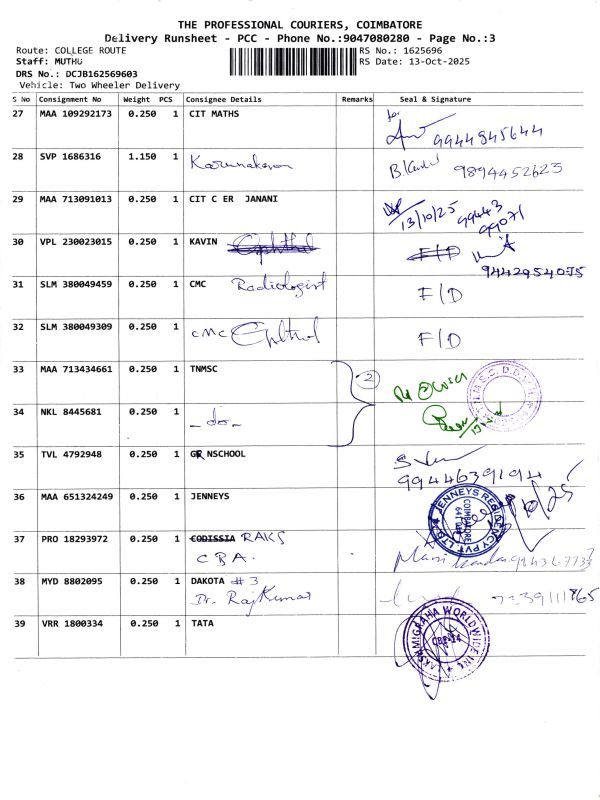 THE PROFESSIONAL COURIERS, COIMBATORE
Delivery Runsheet - PCC - Phone No.:9047080280 - Page No.:3
Route: COLLEGE ROUTE RS No.: 1625696
Staff: MUTHU RS Date: 13-Oct-2025
DRS No.: DCJB162569603
Vehicle: Two Wheeler Delivery
S No Consignment No Weight PCS Consignee Details Remarks Seal & Signature
27 MAA 109292173 0.250 1 CIT MATHS for 9944845644
28 SVP 1686316 1.150 1 Karunakaran 9894452623
29 MAA 713091013 0.250 1 CIT C ER JANANI 13/10/25 99443 99071
30 VPL 230023015 0.250 1 KAVIN F/D 9442954075
31 SLM 380049459 0.250 1 CMC Radiologist F/D
32 SLM 380049309 0.250 1 CMC F/D
33 MAA 713434661 0.250 1 TNMSC 2
34 NKL 8445681 0.250 1 -do-
35 TVL 4792948 0.250 1 GR NSCHOOL 9944639194
36 MAA 651324249 0.250 1 JENNEYS JENNEYS RESIDENCY PVT LTD COIMBATORE
37 PRO 18293972 0.250 1 CODISSIA RAKS
CBA.
38 MYD 8802095 0.250 1 DAKOTA #3
Dr. RajKumar
39 VRR 1800334 0.250 1 TATA WORLDWIDE CBE-14